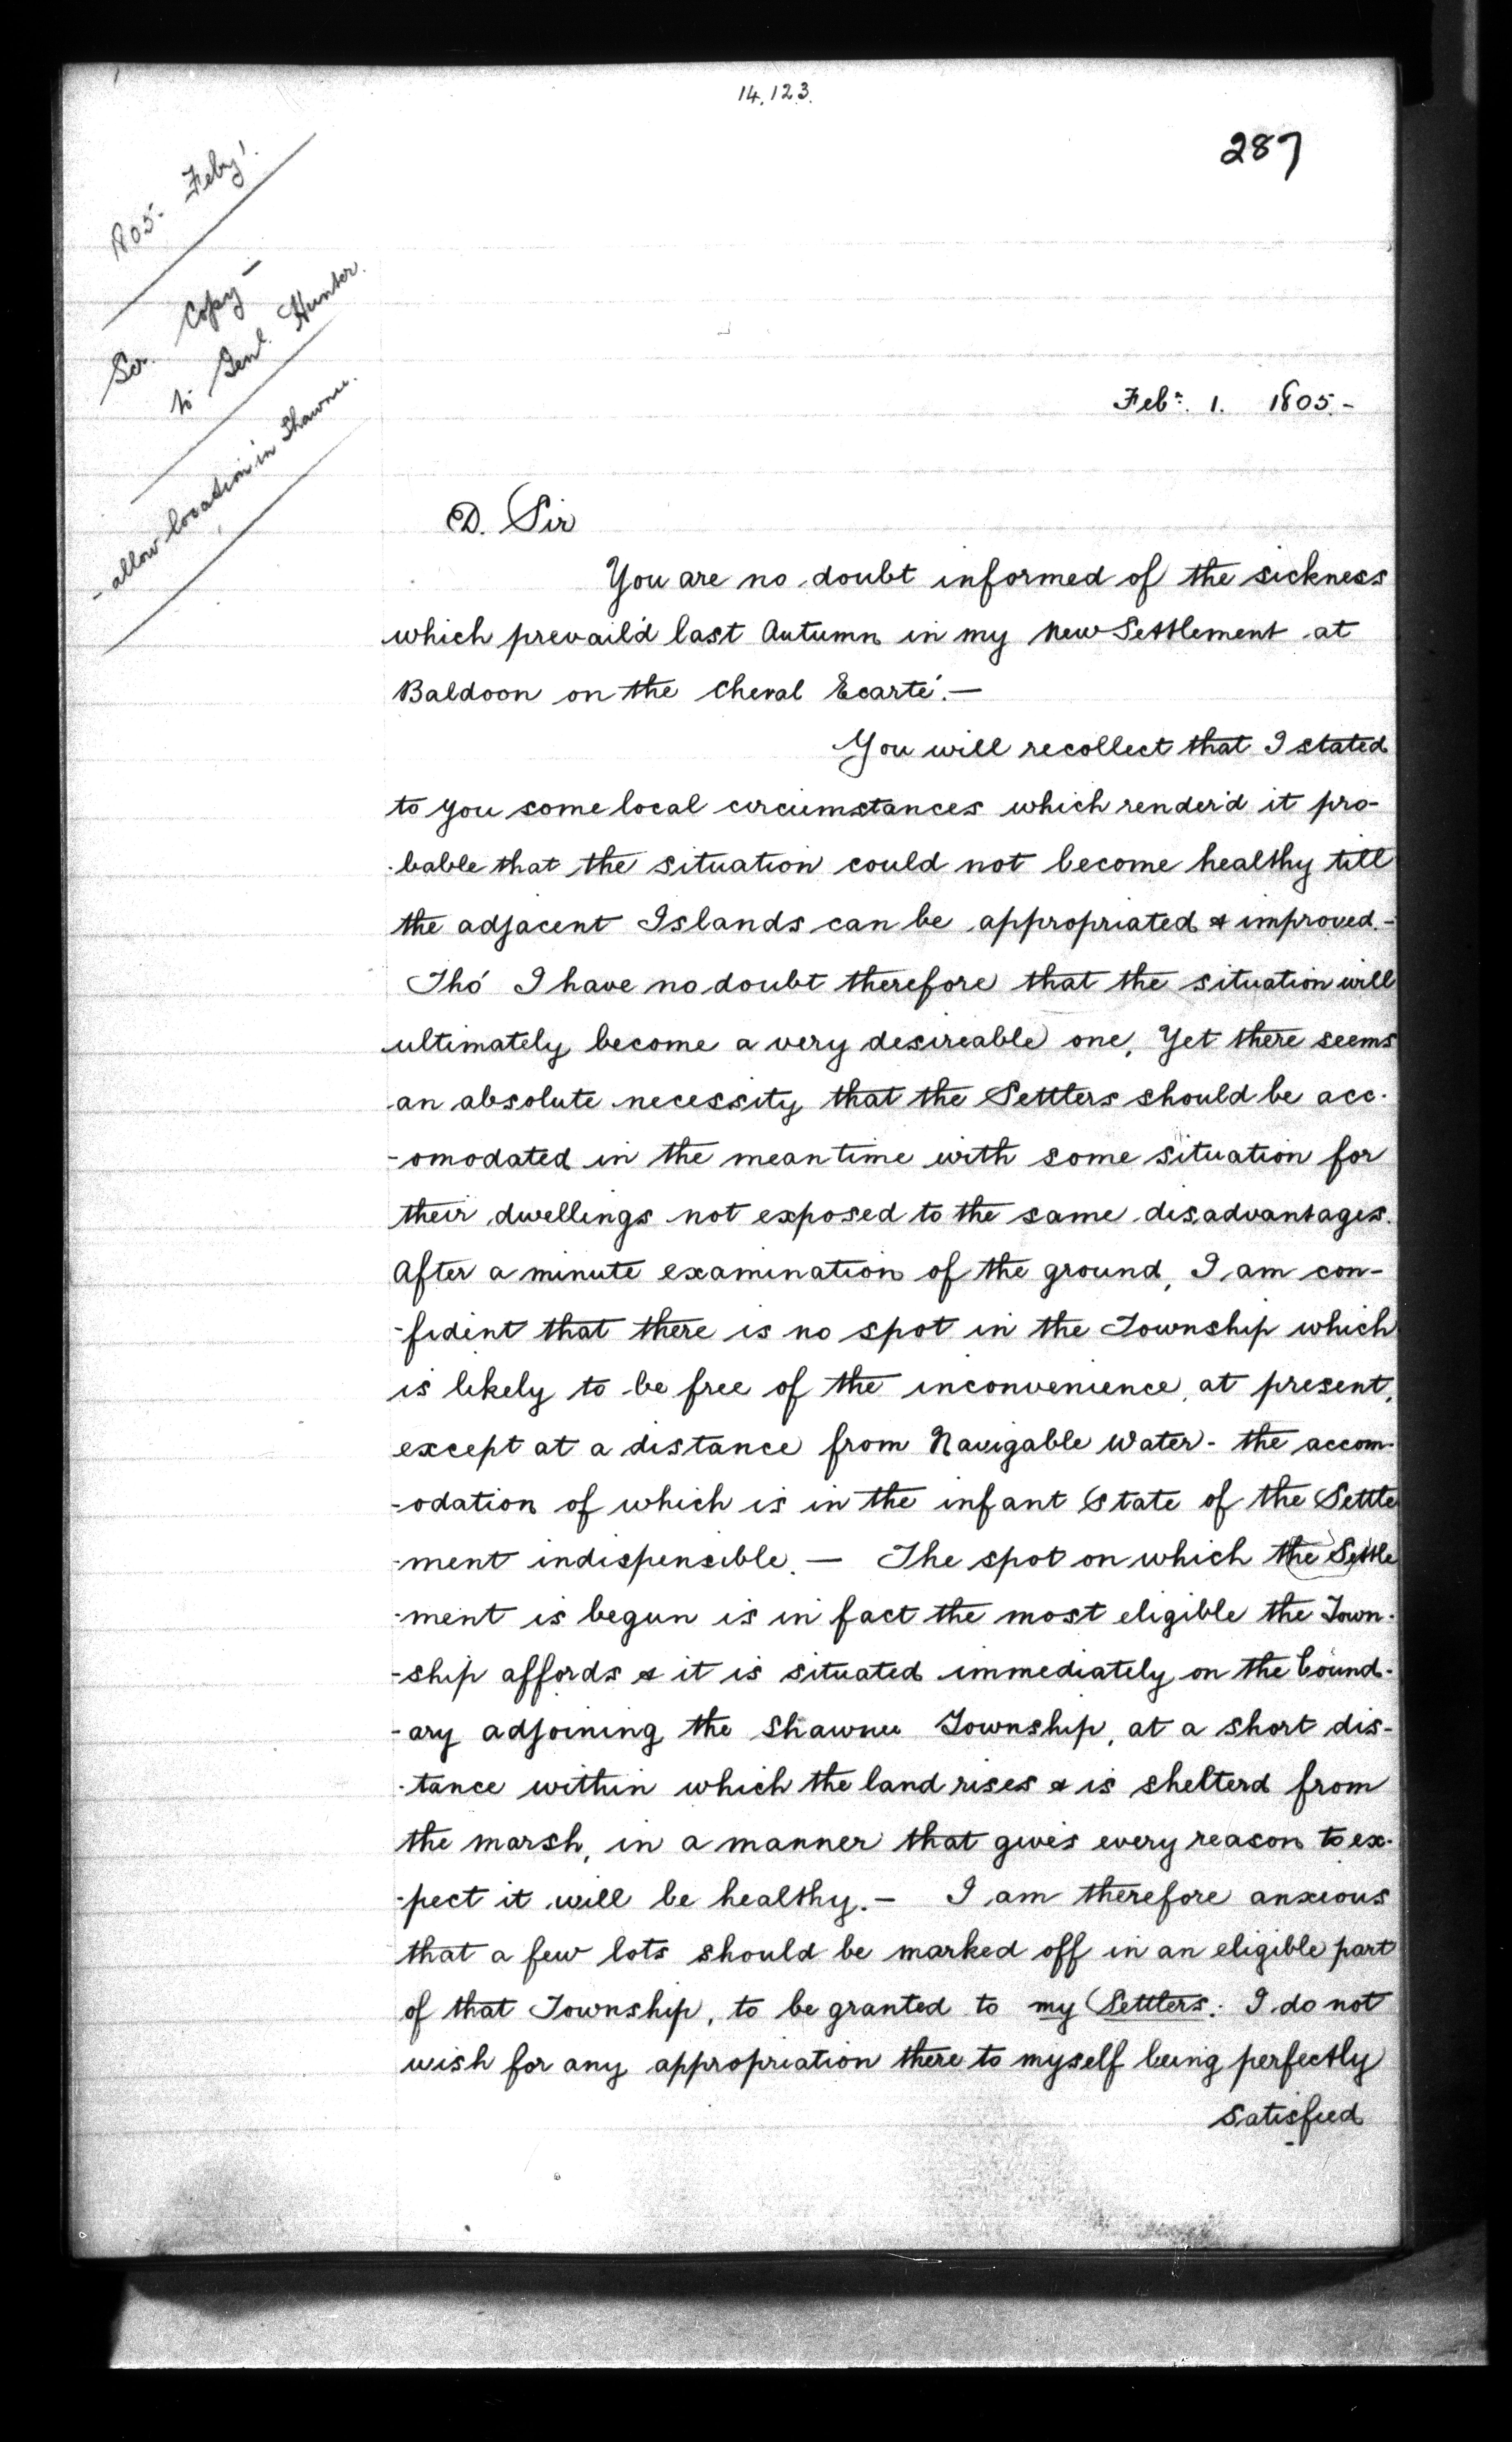 14,123.
287
1805- Feby 1.
Scr. Copy -
to Genl. Hunter.
- allow location in Shawnee.
Feby. 1. 1805.-
D. Sir
You are no doubt informed of the sickness
which prevail'd last Autumn in my New Settlement at
Baldoon on the Cheval Ecarté.-
You will recollect that I stated
to you some local circumstances which render'd it pro-
-bable that the situation could not become healthy till
the adjacent Islands can be appropriated & improved.-
Tho' I have no doubt therefore that the situation will
ultimately become a very desireable one, Yet there seems
an absolute necessity that the Settlers should be acc-
-omodated in the mean time with some situation for
their dwellings not exposed to the same disadvantages.
After a minute examination of the ground, I am con-
-fident that there is no spot in the Township which
is likely to be free of the inconvenience, at present,
except at a distance from Navigable Water - the accom-
-odation of which is in the infant State of the Settle
-ment indispensible. - The spot on which the Settle
-ment is begun is in fact the most eligible the Town-
-ship affords & it is situated immediately on the bound-
-ary adjoining the Shawnee Township, at a short dis-
-tance within which the land rises & is shelterd from
the marsh, in a manner that gives every reason to ex-
-pect it will be healthy. - I am therefore anxious
that a few lots should be marked off in an eligible part
of that Township, to be granted to my Settlers: I do not
wish for any appropriation there to myself being perfectly
satisfied